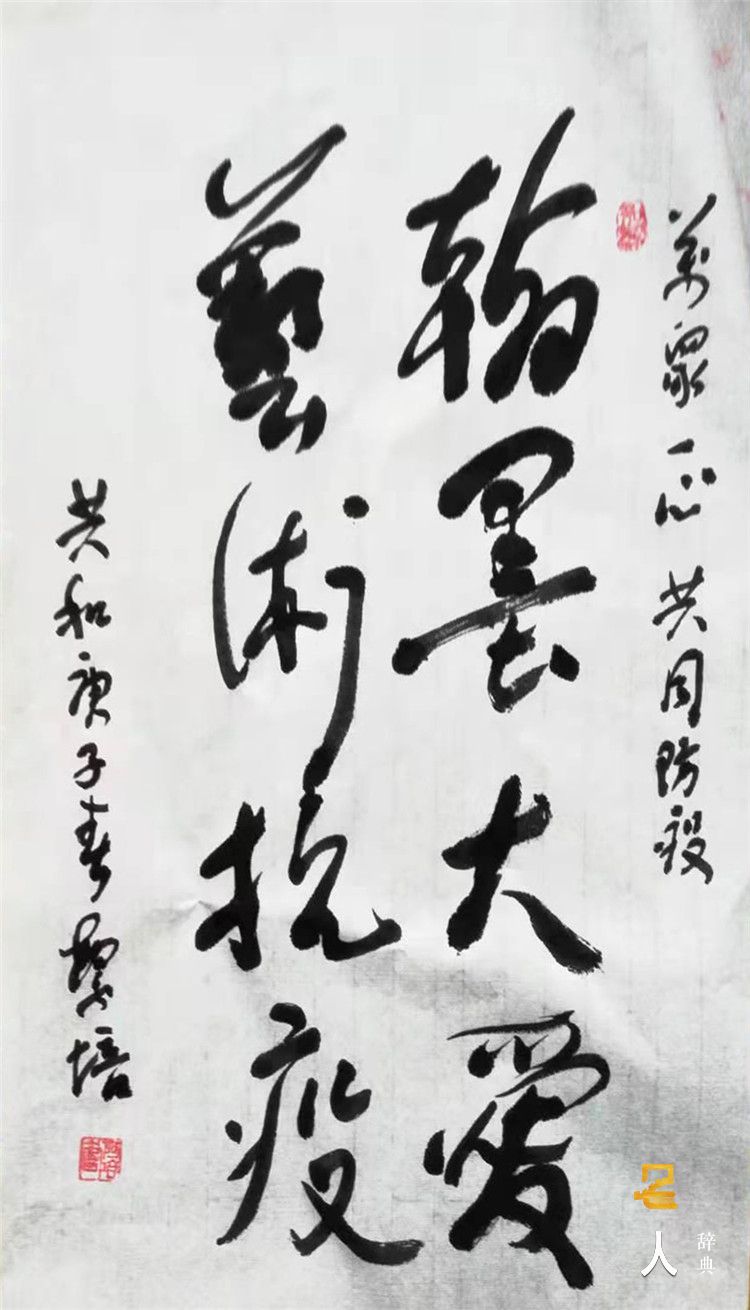 萬眾一心共同防疫
翰墨大愛
藝術抗疫
共和庚子春 培
人
辞典